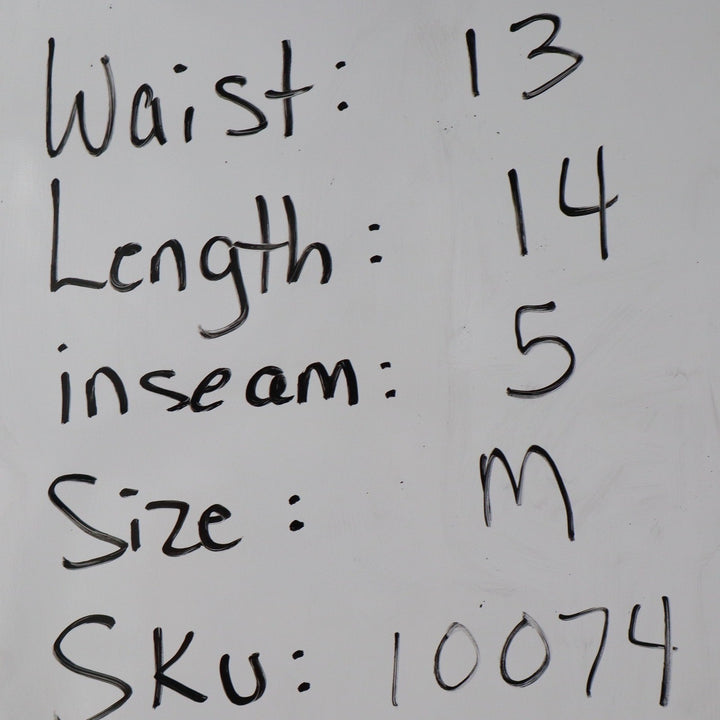 Waist: 13
Length: 14
inseam: 5
Size: M
SKU: 10074